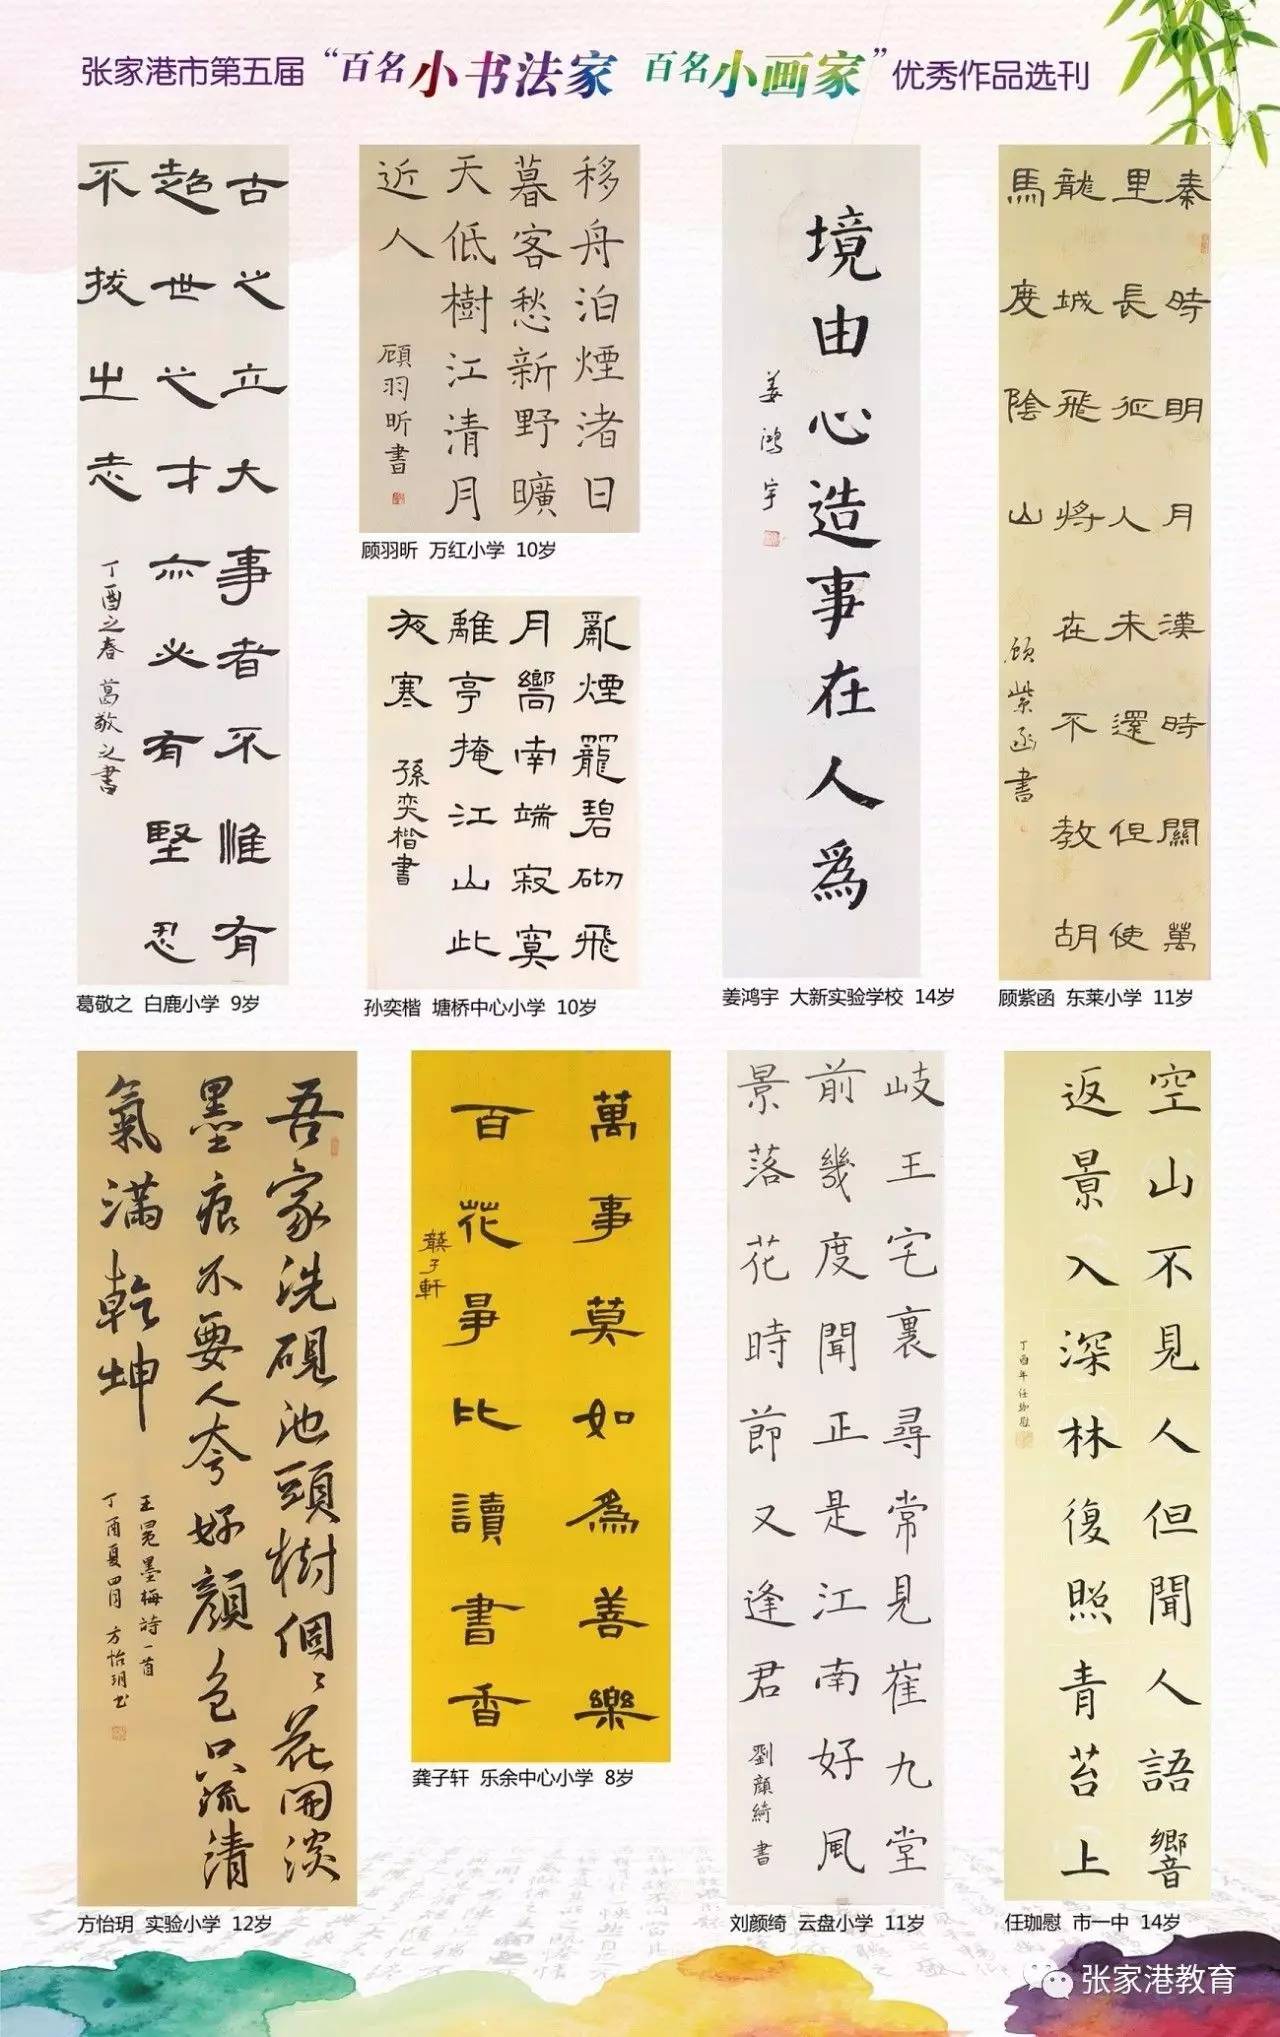 张家港市第五届“百名小书法家 百名小画家”优秀作品选刊
古之立大事者不惟有
超世之才亦必有堅忍
不拔之志
丁酉之春 葛敬之書
葛敬之 白鹿小学 9岁
移舟泊煙渚日
暮客愁新野曠
天低樹江清月
近人
顧羽昕書
顾羽昕 万红小学 10岁
亂煙籠碧砌飛
月嚮南端寂寞
離亭掩江山此
夜寒
孫奕楷書
孙奕楷 塘桥中心小学 10岁
境由心造事在人為
姜鴻宇
姜鸿宇 大新实验学校 14岁
秦時明月漢時關萬
里長征人未還但使
龍城飛將在不教胡
馬度陰山
顧紫函書
顾紫函 东莱小学 11岁
吾家洗硯池頭樹個々花開淡
墨痕不要人夸好顏色只流清
氣滿乾坤
王冕墨梅詩一首
丁酉夏四月 方怡玥书
方怡玥 实验小学 12岁
萬事莫如為善樂
百花爭比讀書香
龔子軒
龚子轩 乐余中心小学 8岁
岐王宅裏尋常見崔九堂
前幾度聞正是江南好風
景落花時節又逢君
劉顏綺書
刘颜绮 云盘小学 11岁
空山不見人但聞人語響
返景入深林復照青苔上
丁酉年任珈慰
任珈慰 市一中 14岁
张家港教育